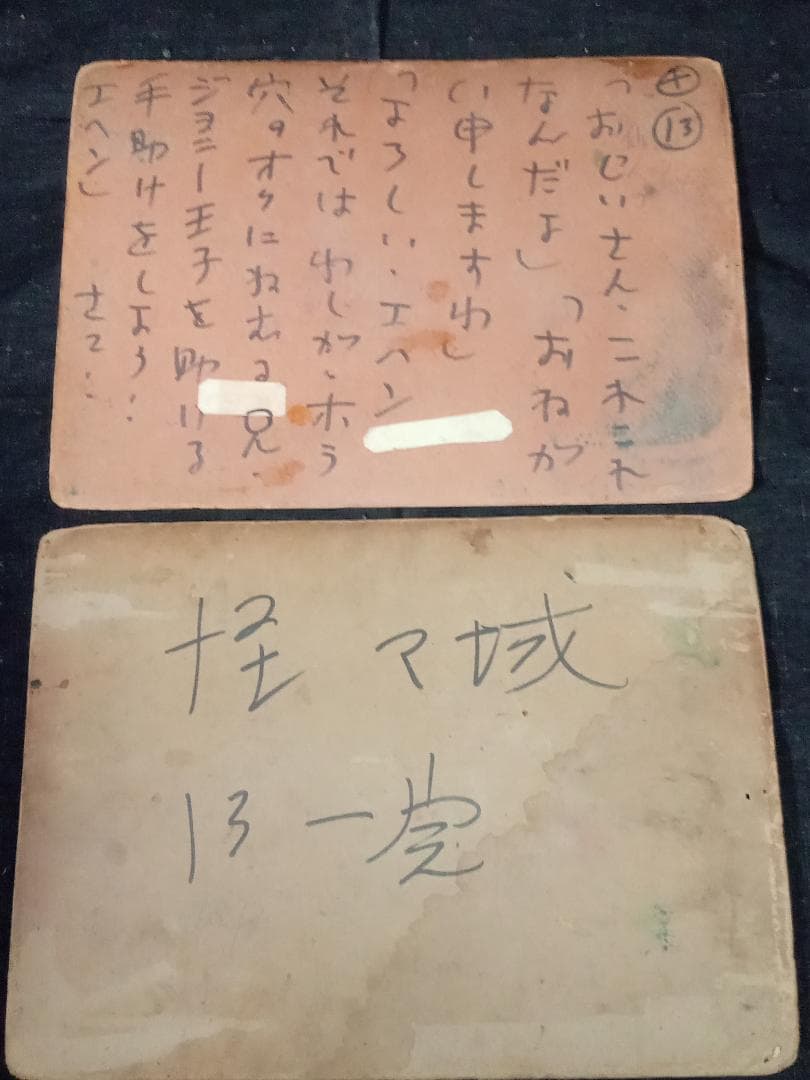 ⊕ ⑬
「おじいさん、これこれ
なんだよ」「おねが
い申しますわ」
「よろしい、エヘン
それでは わしが、ホラ
穴のオクにねむる兄、
ジョニー王子を助ける
手助けをしよう:
エヘン」 さて:
怪マ城
13一